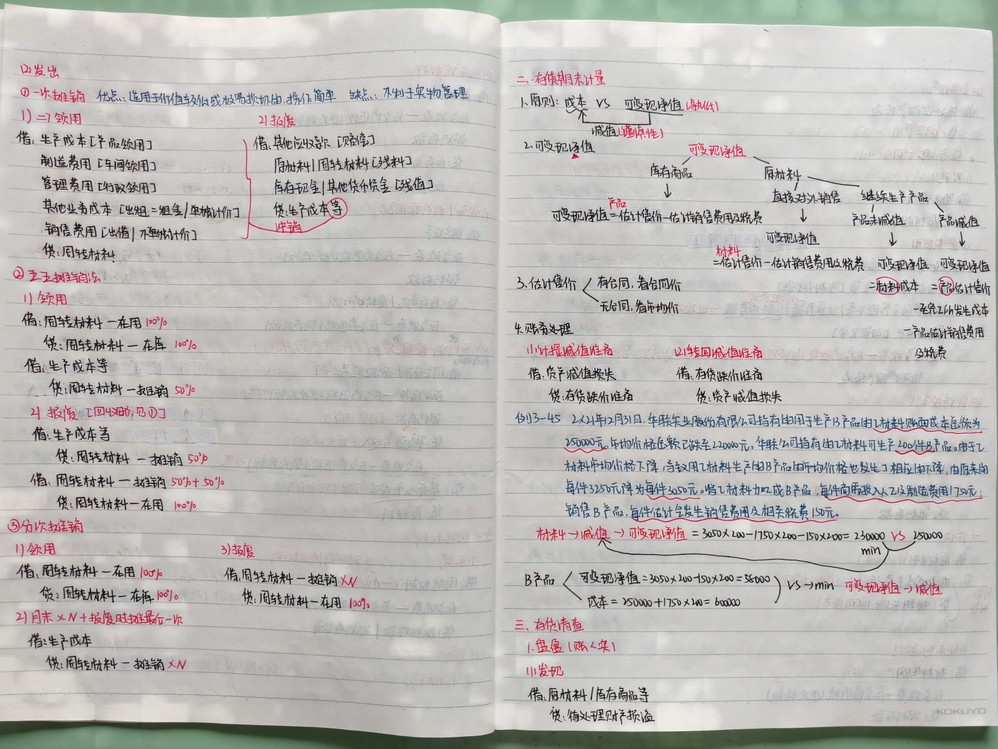 (2)发出
①一次摊销 优点：适用于价值较低或极易损坏的，操作简单 缺点：不利于实物管理
1)=) 领用
借：生产成本[产品领用]
制造费用[车间领用]
管理费用[行政领用]
其他业务成本[出租=租金/单独计价]
销售费用[出借/不单独计价]
贷：周转材料
2)报废
借：其他应收款[赔偿]
原材料/周转材料[残料]
库存现金/其他货币资金[残值]
贷：生产成本等
冲销
②五五摊销法
1)领用
借：周转材料—在用100%
贷：周转材料—在库100%
借：生产成本等
贷：周转材料—摊销50%
2)报废[回收残料,见①]
借：生产成本等
贷：周转材料—摊销50%
借：周转材料—摊销50%+50%
贷：周转材料—在用100%
③分次摊销
1)领用
借：周转材料—在用100%
贷：周转材料—在库100%
2)月末×N+报废时摊最后一次
借：生产成本
贷：周转材料—摊销×N
3)报废
借：周转材料—摊销×N
贷：周转材料—在用100%
二、存货期末计量
1.原则：成本 VS 可变现净值(孰低)
减值(谨慎性)
2.可变现净值
可变现净值
库存商品 原材料
直接对外销售 继续生产产品
产品
可变现净值=估计售价-估计销售费用及税费
产品未减值 产品减值
可变现净值
材料
=估计售价-估计销售费用及税费
可变现净值 可变现净值
=材料成本 =产品估计售价
-至完工估发生成本
-产品估计销售费用
及税费
3.估计售价 有合同,看合同价
无合同,看市场价
4.账务处理
(1)计提减值准备 (2)转回减值准备
借：资产减值损失 借：存货跌价准备
贷：存货跌价准备 贷：资产减值损失
例3-45 2X21年12月31日,华联实业股份有限公司持有的用于生产B产品的乙材料账面成本总额为
250000元,市场价格总额已跌至220000元。华联公司持有的乙材料可生产200件B产品,由于乙
材料市场价格下降,导致用乙材料生产的B产品的市场价格也发生了相应的下降,由原来的
每件3250元降为每件3050元。将乙材料加工成B产品,每件尚需投入人工及制造费用1750元;
销售B产品,每件估计会发生销售费用及相关税费150元。
材料→减值→可变现净值=3050×200-1750×200-150×200=230000 VS 250000
min
B产品 可变现净值=3050×200-150×200=580000
成本=250000+1750×200=600000
VS→min 可变现净值→减值
三、存货清查
1.盘盈(账<实)
(1)发现
借：原材料/库存商品等
贷：待处理财产损溢
KOKUYO